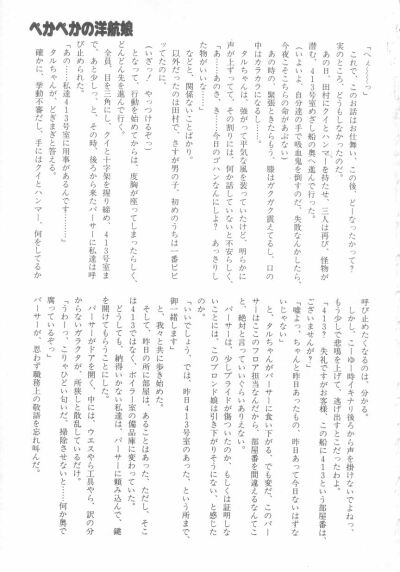 ぺかぺかの洋航娘
「へぇ～～～っ」
これで、このお話はお仕舞い、この後、どーなったかって？
実のところ、どうもしなかったのだ。
あの日、田村にクイとハンマーを持たせ、三人は再び、怪物が
潜む、413号室めざし船の奥へ進んで行った。
（いよいよ、自分達の手で吸血鬼を倒すのだ、失敗なんかしたら、
今夜こそこちらの命があぶない）
あの時の、緊張ときたらもう、膝はガクガク震えてるし、口の
中はカラカラになるし……。
タルちゃんは、強がって平気な風を装っていたけど、明らかに
声が上ずってて、その割りには、何か話していないと不安らしく、
「あ……あのさ、きょ！今日のゴハンなんにしよ？　あっさりし
た物がいいな……」
などと、関係ないことばかり。
以外だったのは田村で、さすが男の子、初めのうちは一番ビビ
ってたのに、
（いざっ！　やっつけるぞっ）
となって、行動を始めてからは、度胸が座ってしまったらしく、
どんどん先を進んで行く。
全員、目を三角にし、クイと十字架を握り締め、413号室ま
で、あと少しっ　と、その時、後ろから来たパーサーに私達は呼
び止められた。
「あの……私達413号室に用事があるんです………」
タルちゃんが、どぎまぎと答える。
確かに、挙動不審だし、手にはクイとハンマー、何をしてるか
呼び止めたくなるのは、分かる。
しかし、こーゆー時イキナリ後ろから声を掛けないでよねっ、
もう少しで悲鳴を上げて、逃げ出すとこだったわよ。
「413？　失礼ですがお客様、この船に413という部屋番は、
ございませんが？」
「嘘よっ、ちゃんと昨日あったもの、昨日あって今日ないはずな
いじゃない」
と、タルちゃんがパーサーに食い下がる、でも変だ、このパー
サーはここのフロア担当なんだから、部屋番を間違えるなんてこ
と、絶対と言っていいぐらいありえない。
パーサーは、少しプライドが傷ついたのか、もしくは証明しな
いことには、このブロンド娘は引き下がりそうにない、と感じた
のか。
「いいでしょう、では、昨日413号室のあった、という所まで、
御一緒します」
と、我々と共に歩き始めた。
そして、昨日の所に部屋は、あることはあった、ただし、そこ
は413ではなく、ボイラー室の備品庫に変わっていた。
どうしても、納得いかない私達は、パーサーに頼み込んで、鍵
を開けてもらうことにした。
パーサーがドアを開く、中には、ウエスやら工具やら、訳の分
からないガラクタが、所狭しと散乱しているだけ。
「うわーっ、こりゃひどい匂いだ、掃除させないと……何か奥で
腐っているぞっ」
パーサーが、思わず職務上の敬語を忘れ叫んだ。